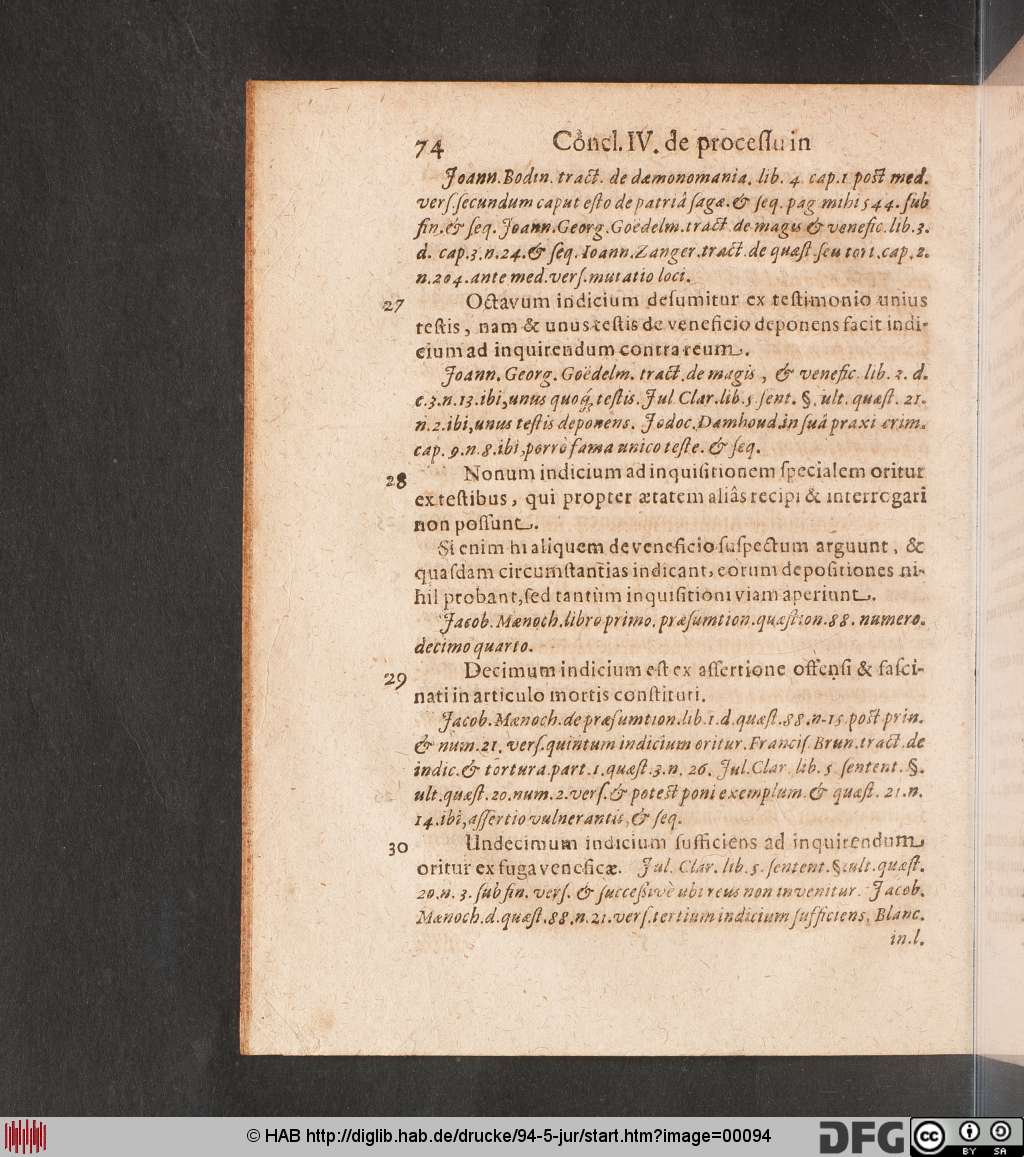 74 Concl. IV. de processu in
Joann. Bodin. tract. de dæmonomania. lib. 4 cap. 1 post med.
vers. secundum caput esto de patriâ sagæ. & seq. pag mihi 544. sub
fin. & seq. Joann. Georg. Goëdelm. tract. de magis & venefic. lib. 3.
d. cap. 3. n. 24. & seq. Ioann. Zanger. tract. de quæst. seu tort. cap. 2.
n. 204. ante med. vers. mutatio loci.
27 Octavum indicium desumitur ex testimonio unius
testis, nam & unus testis de veneficio deponens facit indi-
cium ad inquirendum contra reum.
Joann. Georg. Goëdelm. tract. de magis, & venefic. lib. 3. d.
c. 3. n. 13. ibi, unus quoq; testis. Jul Clar. lib. 5 sent. §. ult. quæst. 21.
n. 2. ibi, unus testis deponens. Jodoc. Damhoud. in suâ praxi crim.
cap. 9. n. 8. ibi, porrò fama unico teste. & seq.
28 Nonum indicium ad inquisitionem specialem oritur
ex testibus, qui propter ætatem aliâs recipi & interrogari
non possunt.
Si enim hi aliquem de veneficio suspectum arguunt, &
quasdam circumstantias indicant, eorum depositiones ni-
hil probant, sed tantùm inquisitioni viam aperiunt.
Jacob. Mænoch. libro primo. præsumtion. quæstion. 88. numero.
decimo quarto.
29 Decimum indicium est ex assertione offensi & fasci-
nati in articulo mortis constituti.
Jacob. Mænoch. de præsumtion. lib. 1. d. quæst. 88. n. 15. post prin.
& num. 21. vers. quintum indicium oritur. Francis. Brun. tract. de
indic. & tortura part. 1. quæst. 3. n. 26. Jul. Clar. lib. 5 sentent. §.
ult. quæst. 20. num. 2. vers. & potest poni exemplum. & quæst. 21. n.
14. ibi, assertio vulnerantis, & seq.
30 Undecimum indicium sufficiens ad inquirendum
oritur ex fuga veneficæ. Jul. Clar. lib. 5. sentent. § ult. quæst.
20. n. 3. sub fin. vers. & successivè ubi reus non invenitur. Jacob.
Mænoch. d. quæst. 88. n. 21. vers. tertium indicium sufficiens. Blanc.
in. l.
© HAB http://diglib.hab.de/drucke/94-5-jur/start.htm?image=00094
DFG cc BY SA